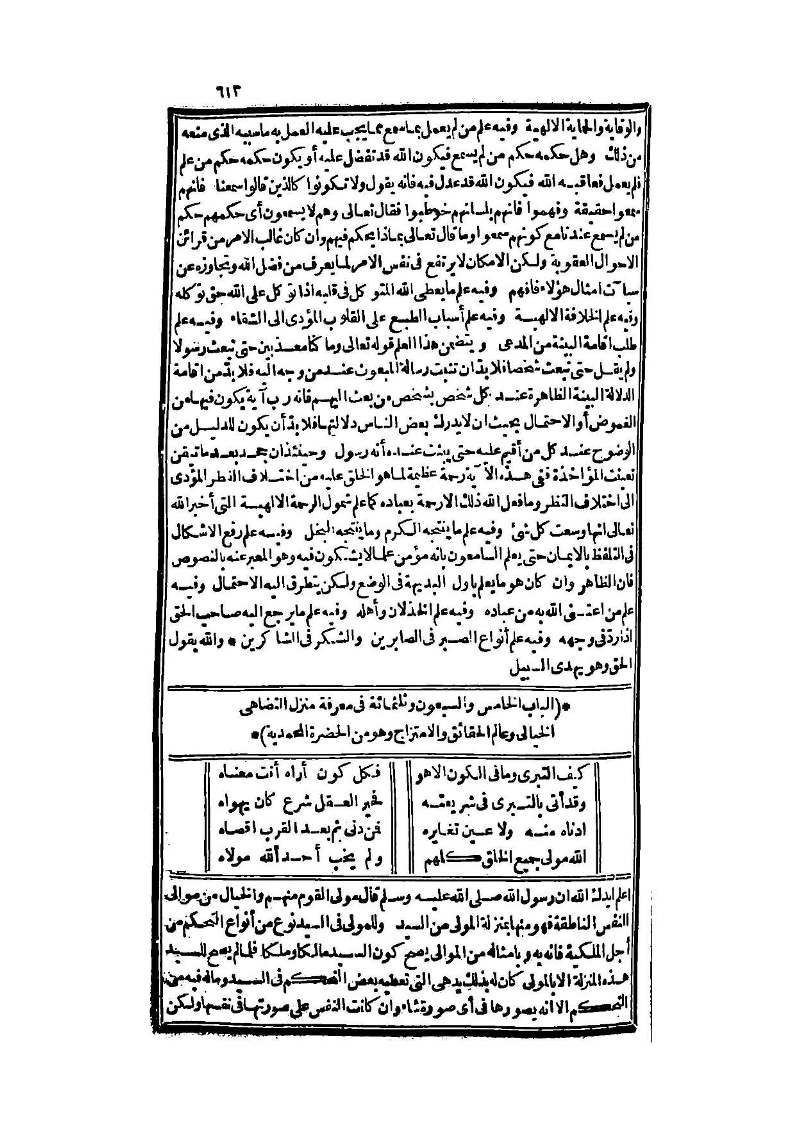 ٦١٣
والوقاية والحماية الالهية وفيه علم من لم يعمل بما سمع مما يجب عليه العمل به ما سببه الذى منعه
من ذلك وهل حكمه حكم من لم يسمع فيكون الله قد تفضل عليه أو يكون حكمه حكم من علم
فلم يعمل فعاقبه الله فيكون الله قد عدل فيه فانه يقول ولا تكونوا كالذين قالوا سمعنا فانهم
سمعوا حقيقة وفهموا فانهم بلسانهم خوطبوا فقال تعالى وهم لا يسمعون أى حكمهم حكم
من لم يسمع عندنا مع كونهم سمعوا وما قال تعالى بماذا يحكم فيهم وان كان غالب الامر من قرائن
الاحوال العقوبة ولكن الامكان لا يرتفع فى نفس الامر لما يعرف من فضل الله وتجاوزه عن
سيآت امثال هؤلاء فافهم وفيه علم ما يعطى الله المتوكل فى قلبه اذا توكل على الله حق توكله
وفيه علم الخلافة الالهية وفيه علم أسباب الطبع على القلوب المؤدى الى الشقاء وفيه علم
طلب اقامة البينة من المدعى ويتضمن هذا العلم قوله تعالى وما كنا معذبين حتى نبعث رسولا
ولم يقل حتى نبعث شخصا فلا بد ان تثبت رسالة المبعوث عند من وجه اليه فلا بد من اقامة
الدلالة البينة الظاهرة عند كل شخص شخص ممن بعث اليهم فانه رب آية يكون فيها من
الغموض أو الاحتمال بحيث ان لا يدرك بعض الناس دلالتها فلا بد أن يكون للدليل من
الوضوح عند كل من أقيم عليه حتى يثبت عنده أنه رسول وحينئذ ان جحد بعد ما تيقن
تعينت المؤاخذة ففى هذه الآية رحمة عظيمة لما هو الخلق عليه من اختلاف الفطر المؤدى
الى اختلاف النظر وما فعل الله ذلك الا رحمة بعباده كما علم شمول الرحمة الالهية التى أخبر الله
تعالى انها وسعت كل شئ وفيه علم ما ينتجه الكرم وما ينتجه البخل وفيه علم رفع الاشكال
فى التلفظ بالايمان حتى يعلم السامعون بانه مؤمن علما لا يشكون فيه وهو المعبر عنه بالنصوص
فان الظاهر وان كان هو ما يعلم باول البديهة فى الوضع ولكن يتطرق اليه الاحتمال وفيه
علم من اعتنى الله به من عباده وفيه علم الخذلان وأهله وفيه علم ما يرجع اليه صاحب الحق
اذا رد فى وجهه وفيه علم أنواع الصبر فى الصابرين والشكر فى الشاكرين * والله يقول
الحق وهو يهدى السبيل
*(الباب الخامس والسبعون وثلثمائة فى معرفة منزل التضاهى
الخيالى وعالم الحقائق والامتزاج وهو من الحضرة المحمدية)*
كيف التبرى وما فى الكون الا هو فكل كون أراه أنت معناه
وقد أتى بالتبرى فى شريعته فحير العقل شرع كان يهواه
ادناه منه ولا عين تغايره فمن دنى ثم بعد القرب اقصاه
الله مولى جميع الخلق كلهم ولم يخب أحد الله مولاه
اعلم ايدك الله ان رسول الله صلى الله عليه وسلم قال مولى القوم منهم والخيال من موالى
النفس الناطقة فهو منها بمنزلة المولى من السيد وللمولى فى السيد نوع من أنواع التحكم من
أجل الملكية فانه به وبامثاله من الموالى يصح كون السيد مالكا وملكا فلما لم يصح للسيد
هذه المنزلة الا بالمولى كان له بذلك يد هى التى تعطيه بعض التحكم فى السيد وما له فيه من
التحكم الا انه يصورها فى أى صورة شاء وان كانت النفس على صورتها فى نفسها ولكن